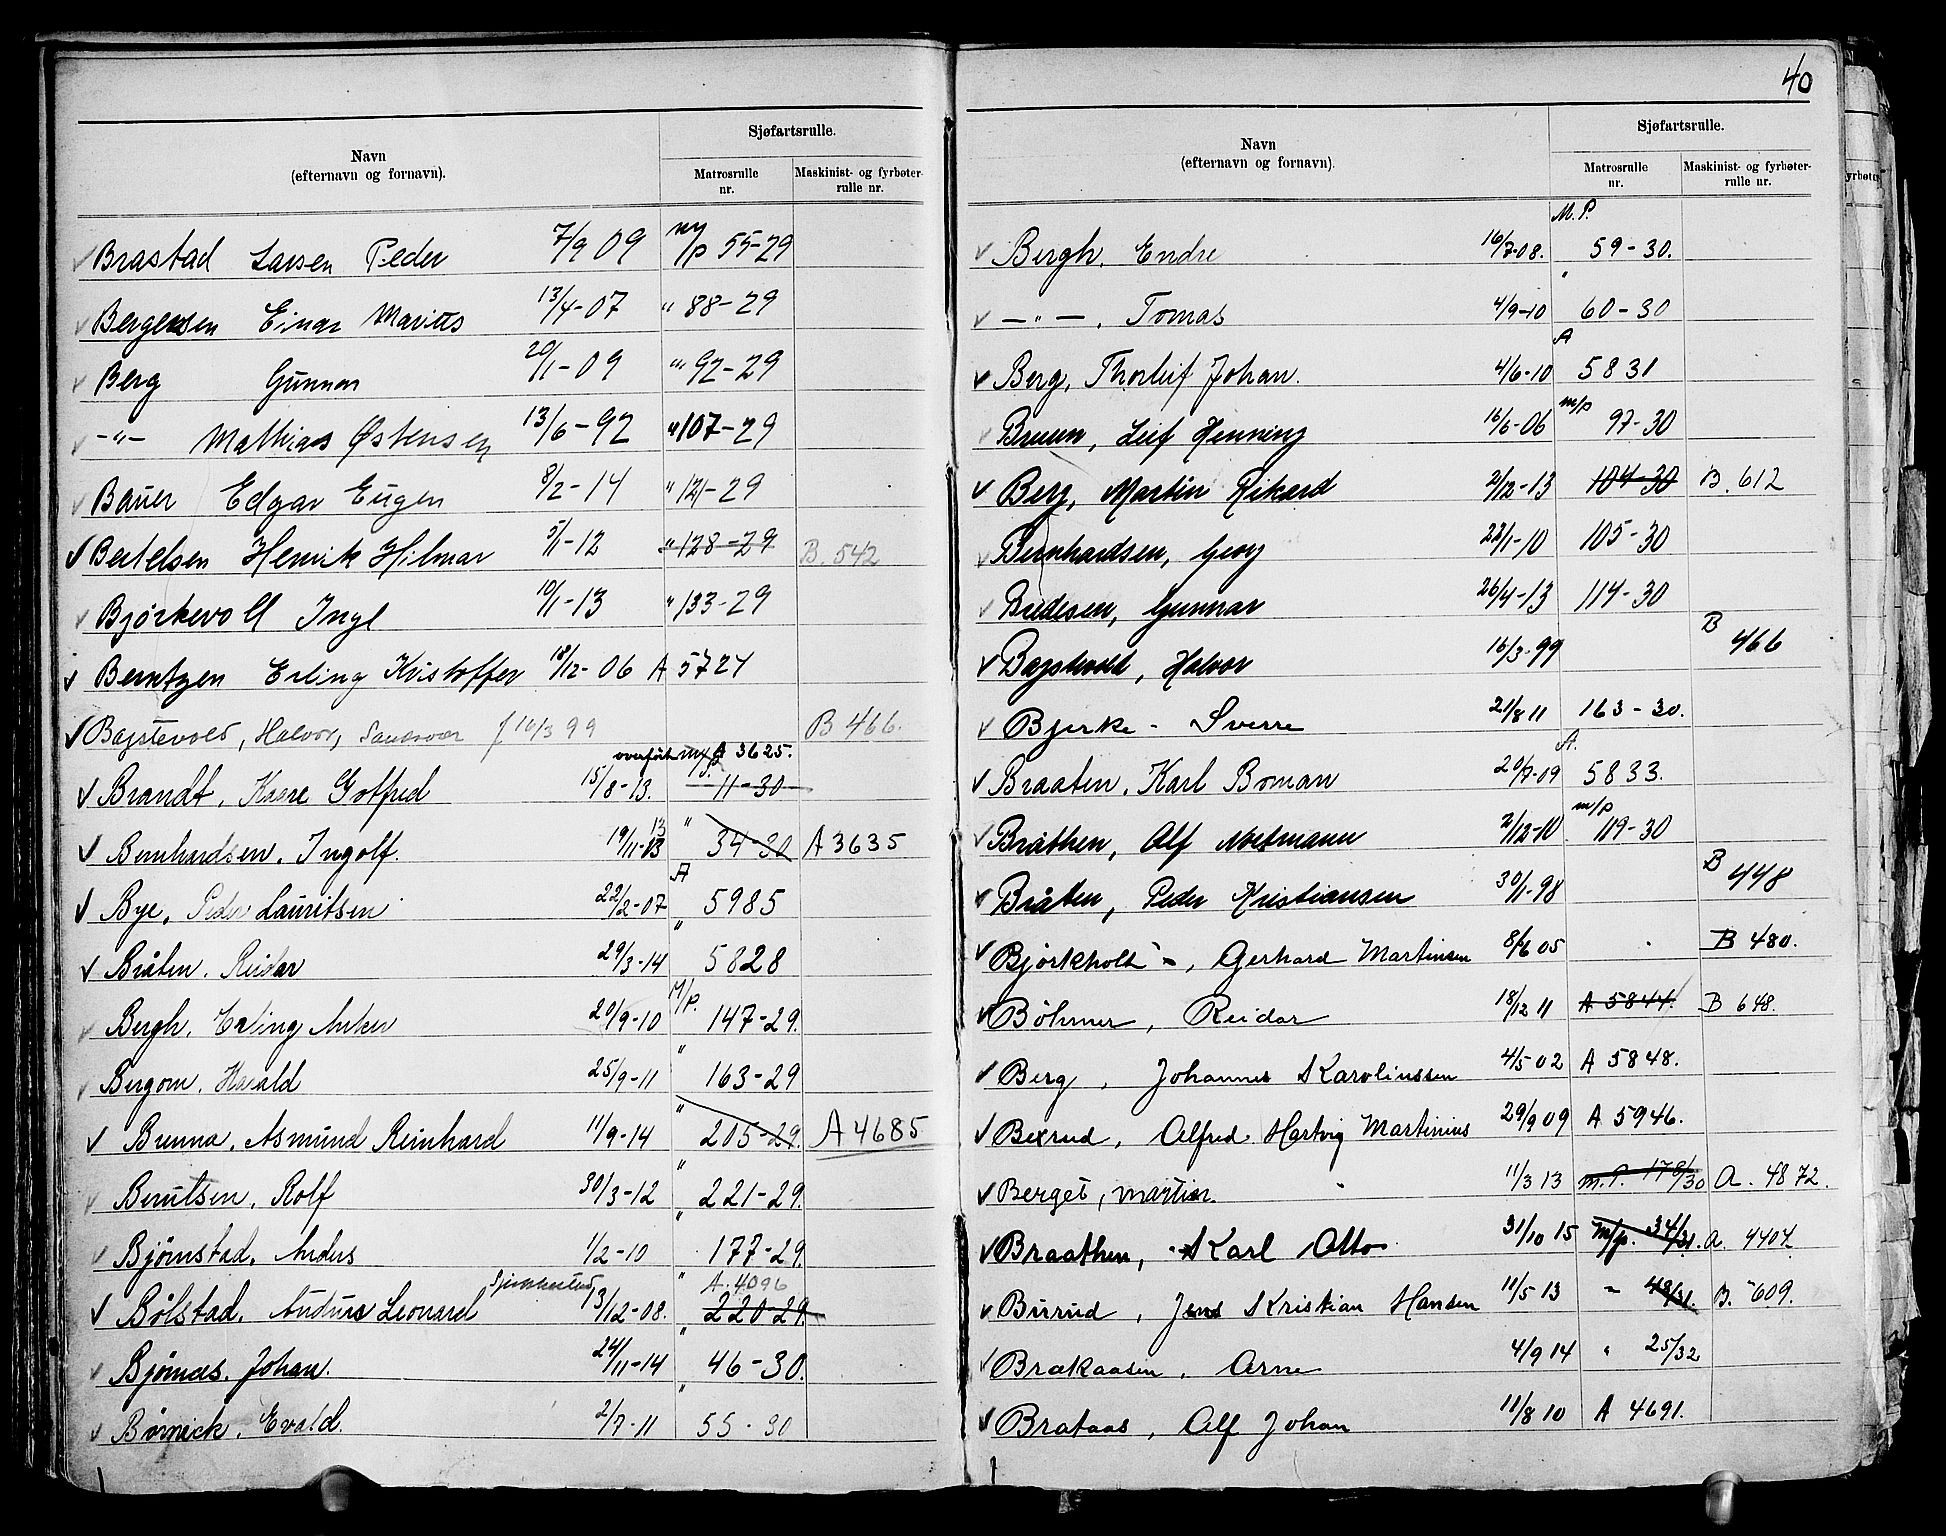 Navn
(efternavn og fornavn).
Sjøfartsrulle.
Matrosrulle nr.
Maskinist- og fyrbøter-rulle nr.
✓ Brastad Larsen Peder 7/9 09 m/p 55-29
✓ Bergersen Einar Marius 13/4-07 " 88-29
✓ Berg Gunnar 20/1-09 "" 92-29
✓ -"- Mathias Østensen 13/6-92 " 107-29
✓ Bauer Edgar Eugen 8/2-14 " 121-29
✓ Bertelsen Henrik Hilmar 5/11-12 " 128-29 B. 542
✓ Bjørkevoll Ingl 10/1-13 " 133-29
✓ Berntzen Erling Kristoffer 18/12-06 A 5724
✓ Bagstevold, Halvor, Sandsvær f 16/3 99 B 466.
overført A 3625.
✓ Brandt, Kaare Gotfred 15/8-13. 11-30
✓ Bernhardsen, Ingolf. 19/11-13 13 " 34-30 A 3635
✓ Bye, Peder Lauritsen 22/2-07 A 5985
✓ Bråten, Reidar 29/3-14 " 5828
✓ Bergh, Erling Anker 20/9-10 M/P. 147-29.
✓ Bergom, Harald 25/9-11 " 163-29
✓ Brenna, Asmund Reinhard 11/9-14 " 205-29. A 4685
✓ Berntsen, Rolf 30/3-12 " 221-29.
✓ Bjørnstad, Anders 1/2-10 " 177-29.
A. 4096
✓ Bølstad, Leonard 13/12-08. " 220-29.
✓ Bjørnæs, Johan. 24/11-14 " 46-30.
✓ Børnick, Evald. 2/7-11 " 55-30
40
Navn
(efternavn og fornavn).
Sjøfartsrulle.
Matrosrulle nr.
Maskinist- og fyrbøter-rulle nr.
yrbøter
✓ Bergh, Endre 16/7-08. M.P. 59-30.
✓ -"-, Tomas 4/9-10 " 60-30
✓ Berg, Thorleif Johan. 4/6-10 A 5831
✓ Bruun, Leif Henning 16/6-06 m/p 97-30
✓ Berg, Martin Rikard 2/12-13 104-30 B. 612
✓ Bernhardsen, Georg 22/1-10 105-30
✓ Bredesen, Gunnar 26/4-13 114-30
✓ Bagstevold, Halvor 16/3-99 B 466
✓ Bjerke - Sverre 21/8 11 163-30.
✓ Braaten, Karl Boman 20/7-09 A. 5833.
✓ Bråthen, Alf 2/12-10 m/p 119-30
✓ Bråten, Peder Kristiansen 30/1-98 B 448
✓ Bjørkholt -, Gerhard Martinsen 8/6 05 B 480.
✓ Böhmer, Reidar 18/12 11 A 5844. B 648.
✓ Berg, Johannes Karolinssen 4/5 02 A 5848.
✓ Bexrud, Alfred Hartvig Martinius 29/9 09 A 5946.
✓ Berget, Martin. 11/3 13 m.P. 178/30 A. 4872.
✓ Braathen, Karl Otto 31/10 15 M/p. 34/31. A. 4407.
✓ Burud, Jens Kristian Hansen 11/5 13 " 49/31. B. 609.
✓ Brækaasen, Arne 4/9 14 " 25/32
✓ Brataas, Alf Johan 11/8 10 A 4691.